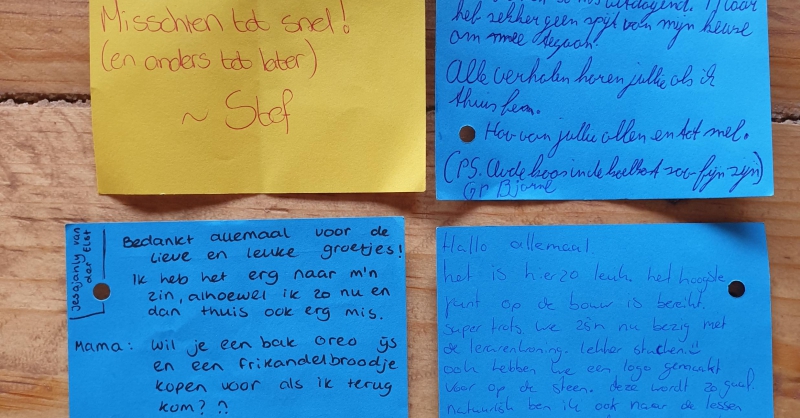 Misschien tot snel!
(en anders tot later)
~ Stef
heb zekker geen spijt van mijn keuze
om mee tegaan.
Alle verhalen horen jullie als ik
thuis ben.
Hou van jullie allen en tot snel.
(PS. Oude kaas in de koelkast zou fijn zijn)
Jesajanly van
der Elst
Bedankt allemaal voor de
lieve en leuke groetjes!
Ik heb het erg naar m'n
zin, alhoewel ik zo nu en
dan thuis ook erg mis.
Mama: Wil je een bak oreo ijs
en een frikandelbroodje
kopen voor als ik terug
kom? ?
Hallo allemaal.
het is hierzo leuk. het hoogste
punt op de bouw is bereikt.
super trots we zijn nu bezig met
de lerarenwoning. lekker stucken
ook hebben we een logo gemaakt
voor op de steen. deze wordt zo gaaf.
natuurlijk ben ik ook naar de lessen